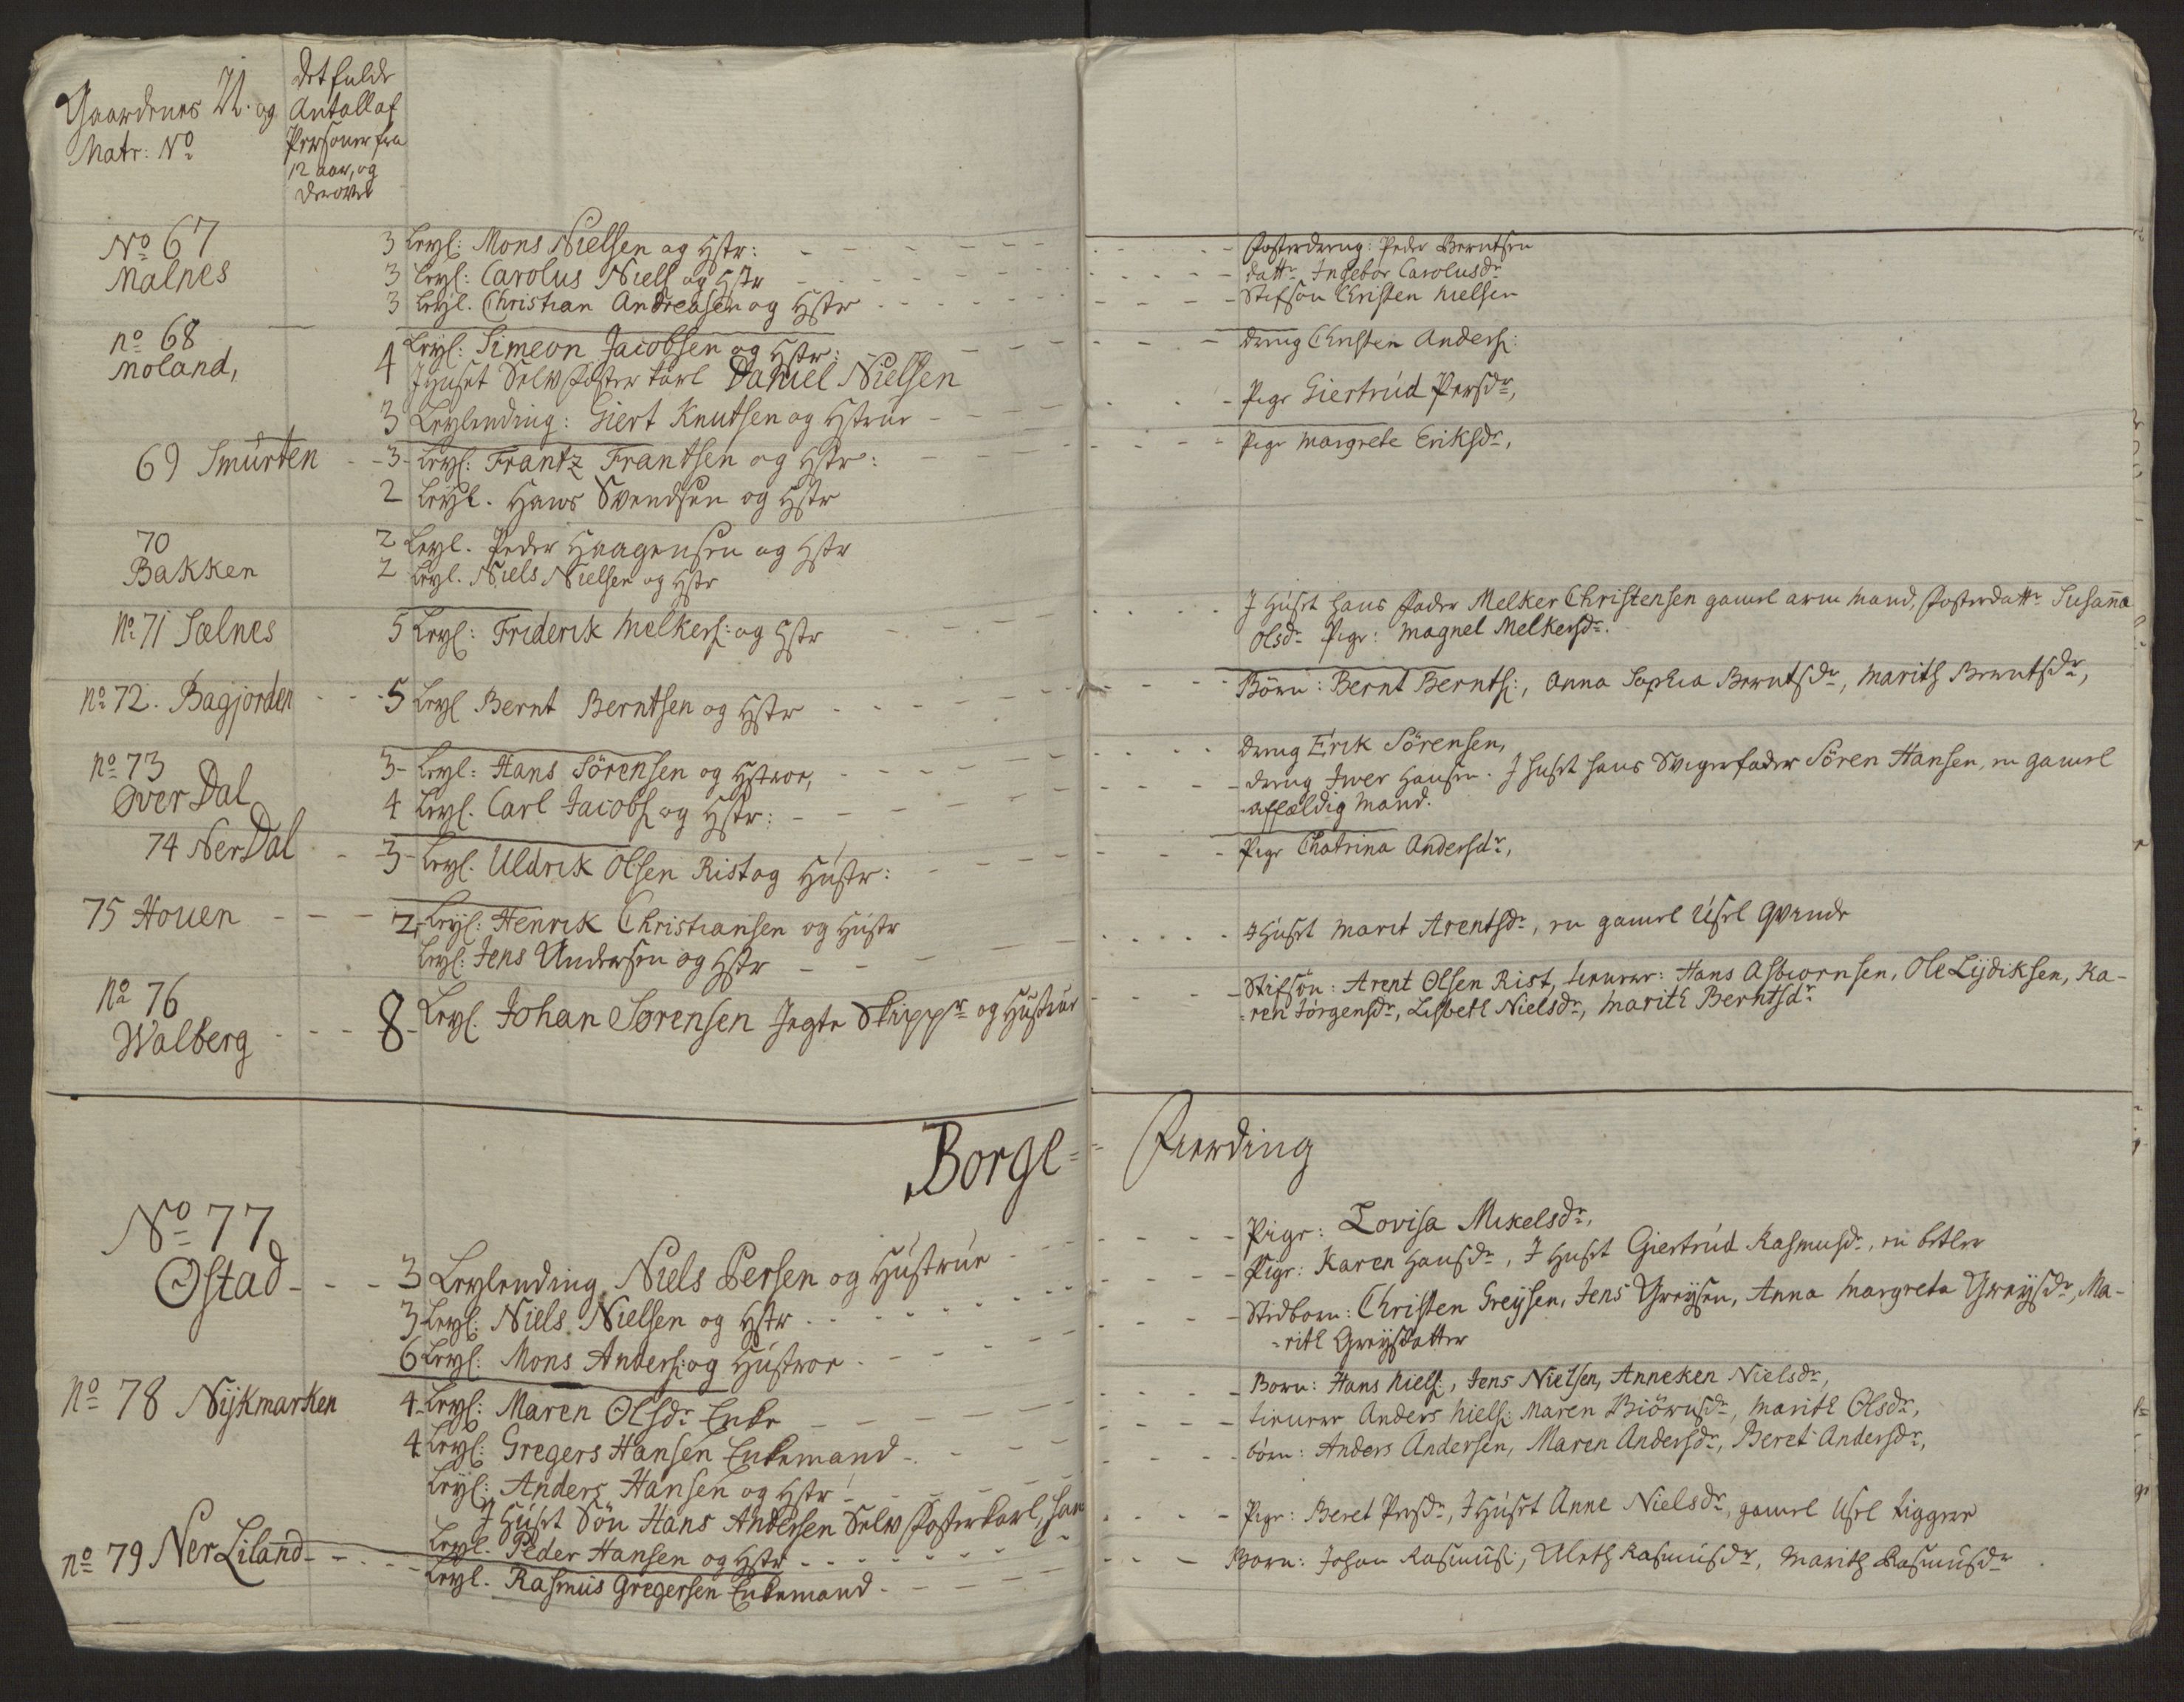 Gaardenes N. og
Matr: No
Det fulde
Antall af
Personer fra
12 aar, og
derover
No 67
Malnes
3 Leyl: Mons Nielsen og Hstr: - - - Fosterdreng: Peder Berntsen
3 Leyl: Carolus Niels og Hstr - - - dattr Ingebor Carolusdr
3 Leyl. Christian Andreasen og Hstr - - - Stifsøn Christen Nielsen
no 68
Moland,
4 Leyl: Simeon Jacobsen og Hstr: - - - dreng Christen Anders:
I Huset Selvfoster karl Daniel Nielsen
3 Leylending: Giert Knutsen og Hstrue - - - Pige Giertrud Persdr,
69 Smurten - 3 - Leyl: Frantz Frantsen og Hstr: - - - Pige Margrete Eriksdr,
2 Leyl. Hans Svendsen og Hstr
70
Bakken
2 Leyl. Peder Haagensen og Hstr
2 Leyl. Niels Nielsen og Hstr
No 71 Sælnes 5 Leyl: Friderik Melkers: og Hstr - - - I Huset hans Fader Melker Christensen gamel arm Mand, Fosterdattr Susanna
Olsdr Pige: Magnel Melkersdr.
no 72. Bagjorden - - 5 Leyl Bernt Berntsen og Hstr - - - Børn: Bernt Bernts:, Anna Sophia Berntsdr, Marith Berntsdr,
no 73
Over Dal
3 - Leyl: Hans Sörensen og Hstroe, - - - dreng Erik Sörensen,
4 Leyl. Carl Jacobs og Hstr: - - - dreng Iwer Hansen. I huset hans Svigerfader Sören Hansen, en gamel
affældig Mand.
74 Ner Dal - 3 - Leyl. Uldrik Olsen Rist og Hustr: - - - Pige Chatrina Andersdr,
75 Houen - - - 2 - Leyl: Henrik Christiansen og Hustr
Leyl: Jens Andersen og Hstr - - - I Huset Marit Arentsdr, en gamel Usel Qvinde
No 76
Walberg - - - 8 - Leyl. Johan Sørensen Jegte Skippr og Hustrue - - - Stifsøn: Arent Olsen Rist, tienere: Hans Asbiornsen, Ole Lijdiksen, Ka-
-ren Jørgensdr, Lisbeth Nielsdr, Marith Berntsdr
Borge= Fierding
No 77
Ostad - - - 3 Leylending Niels Persen og Hustrue - - - Pige: Lovisa Mikelsdr,
3 Leyl: Niels Nielsen og Hstr - - - Pige: Karen Hansdr, I Huset Giertrud Rasmusdr, en betler
6 Leyl: Mons Anders: og Hustroe - - - Stedborn: Christen Greysen, Jens Greysen, Anna Margreta Greysdr, Ma-
-rith Greysdatter
No 78 Nijkmarken 4 - Leyl: Maren Olsdr Enke - - - Born: Hans Niels:, Jens Nielsen, Anneken Nielsdr,
4 Leyl: Gregers Hansen Enkemand - - - tienere Anders Niels: Maren Biörnsdr, Marith Olsdr,
Leyl: Anders Hansen og Hstr - - - börn: Anders Andersen, Maren Andersdr, Beret Andersdr,
I Huset Sön Hans Andersen Selv Fosterkarl,
no 79 Ner Liland - - - Leyl. Peder Hansen og Hstr - - - Pige: Beret Persdr, I Huset Anne Nielsdr, gamel Usel tiggere
Leyl. Rasmus Gregersen Enkemand - - - Born: Johan Rasmus:, Aleth Rasmusdr, Marith Rasmusdr